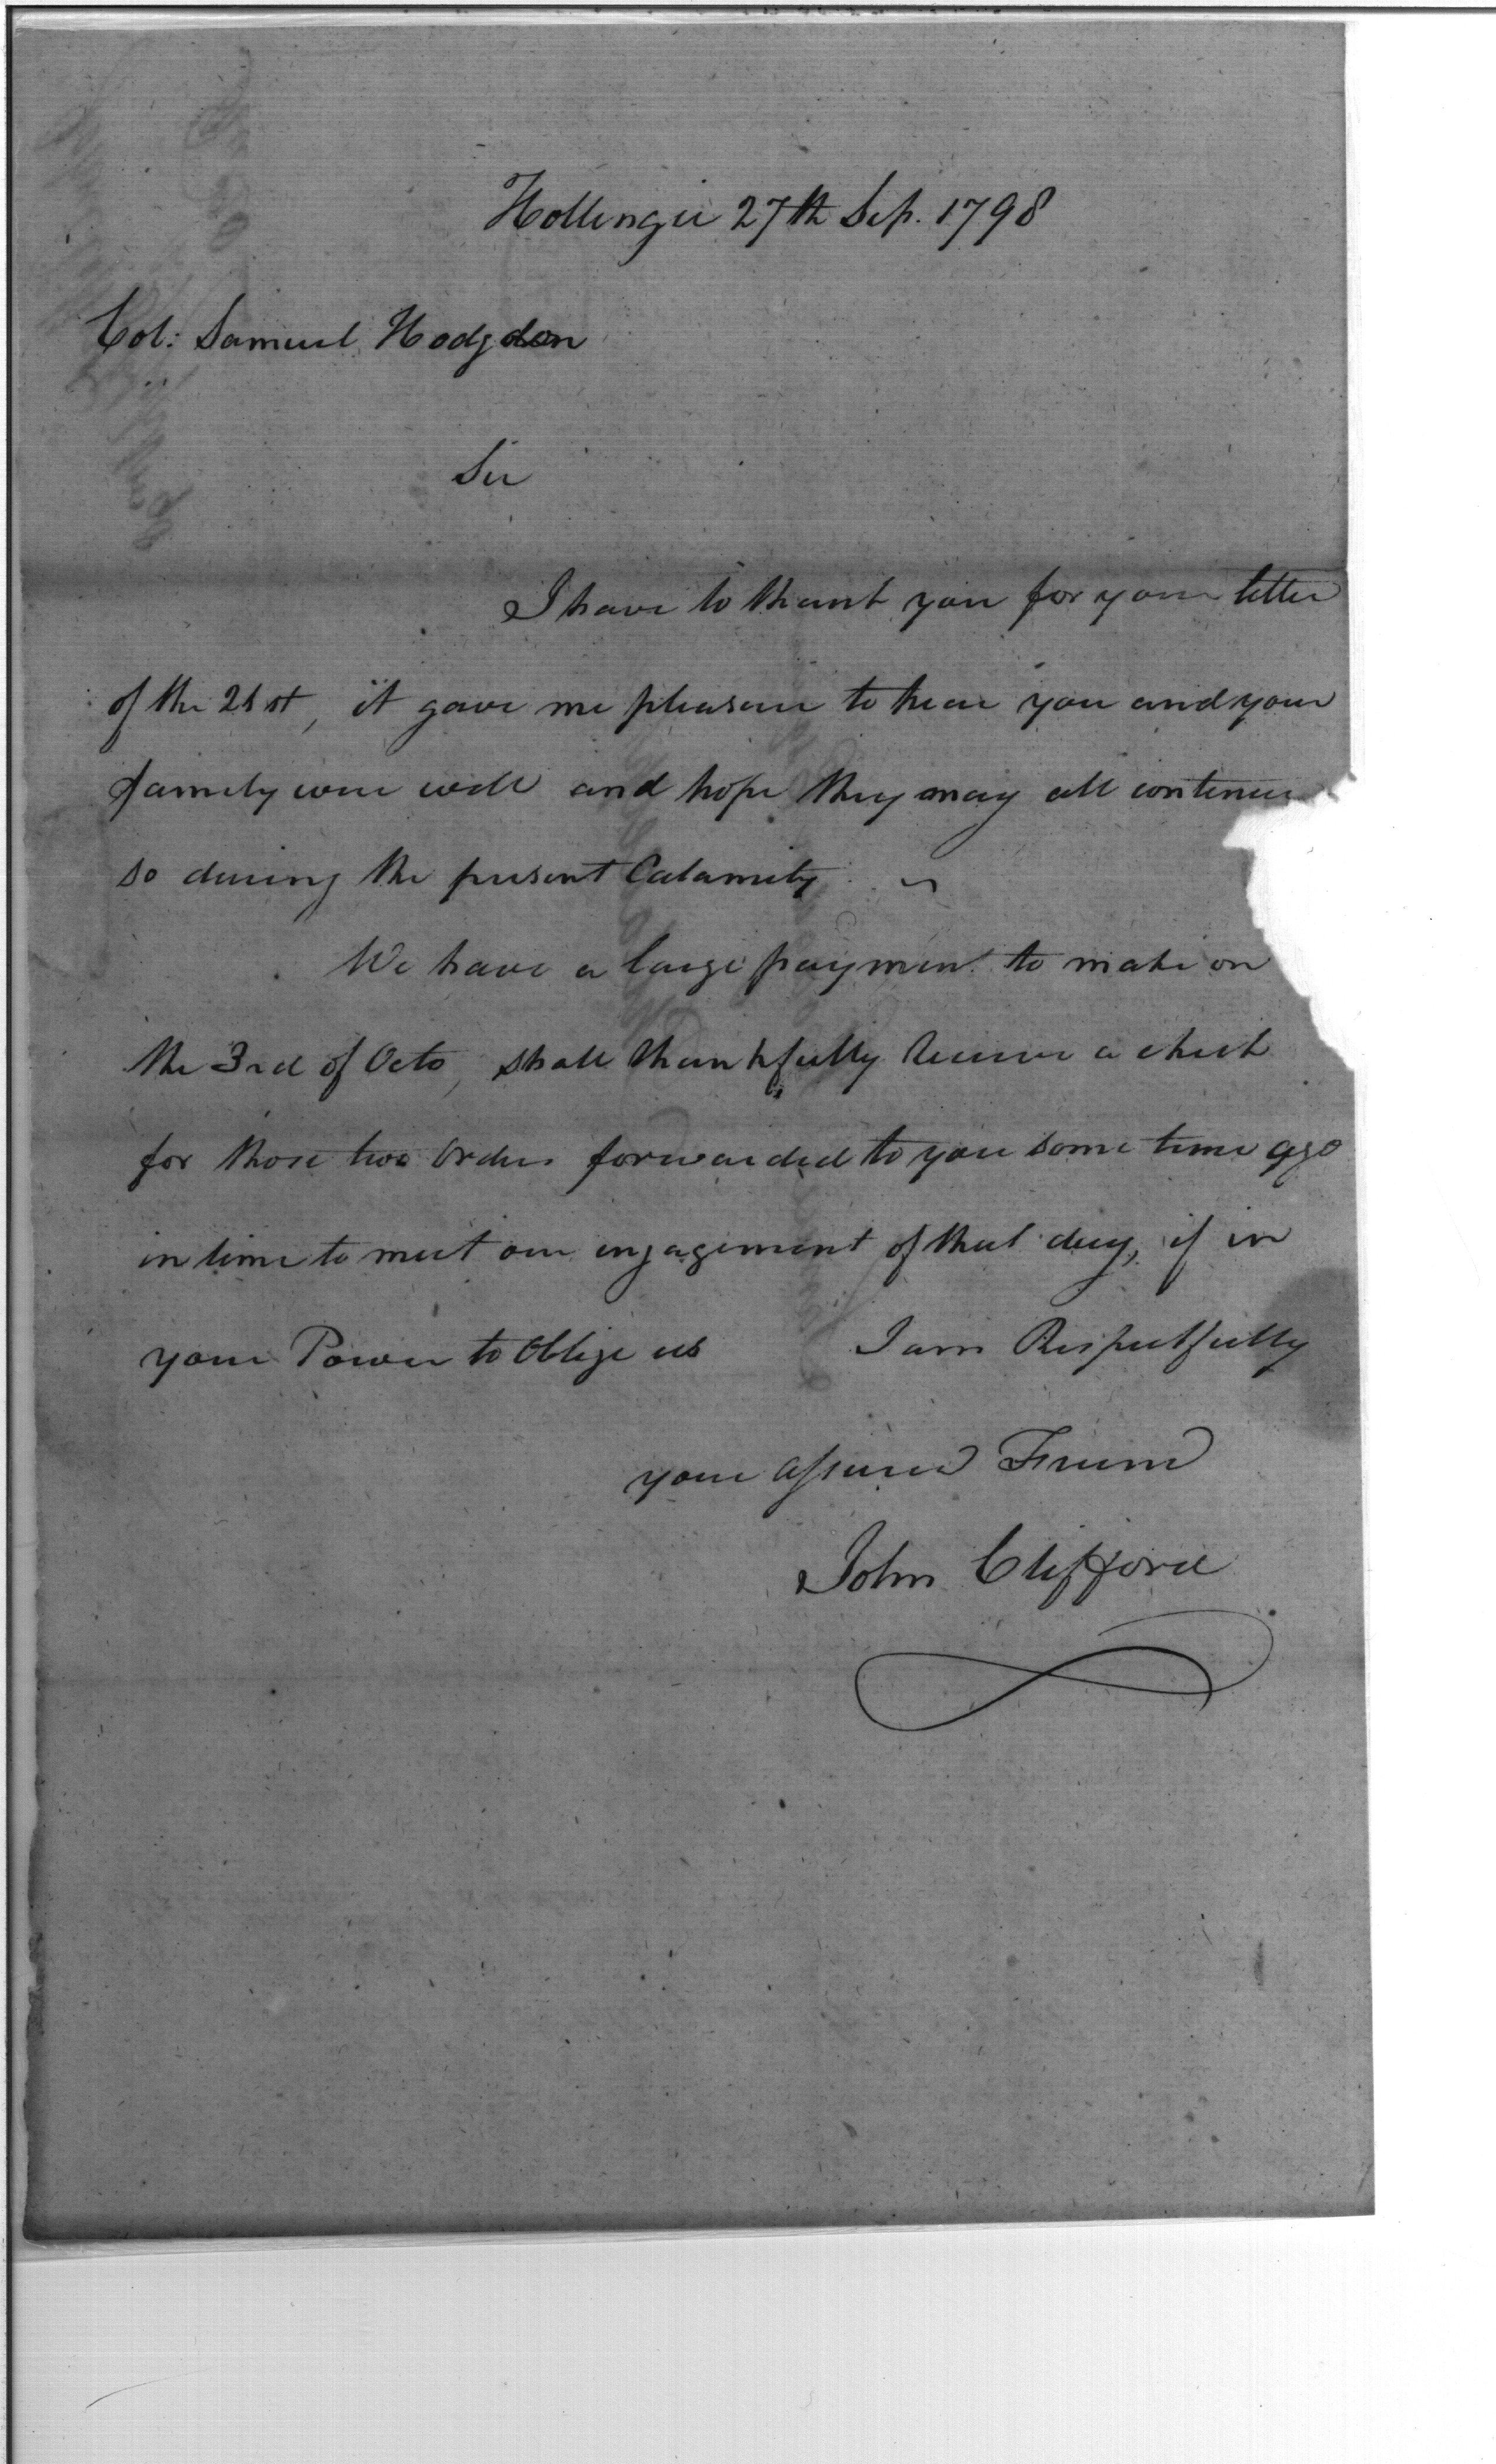 Hollingie 27th Sep. 1798
Col: Samuel Hodgdon
Sir
I have to thank you for your letter
of the 21st, it gave me pleasure to hear you and your
family were well and hope they may all continue
so during the present Calamity
We have a large payment to make on
the 3rd of Octo, shall thankfully Receive a check
for those two Orders forwarded to you some time ago
in time to meet our engagement of that day, if in
your Power to Oblige us I am Respectfully
your assured Friend
John Clifford